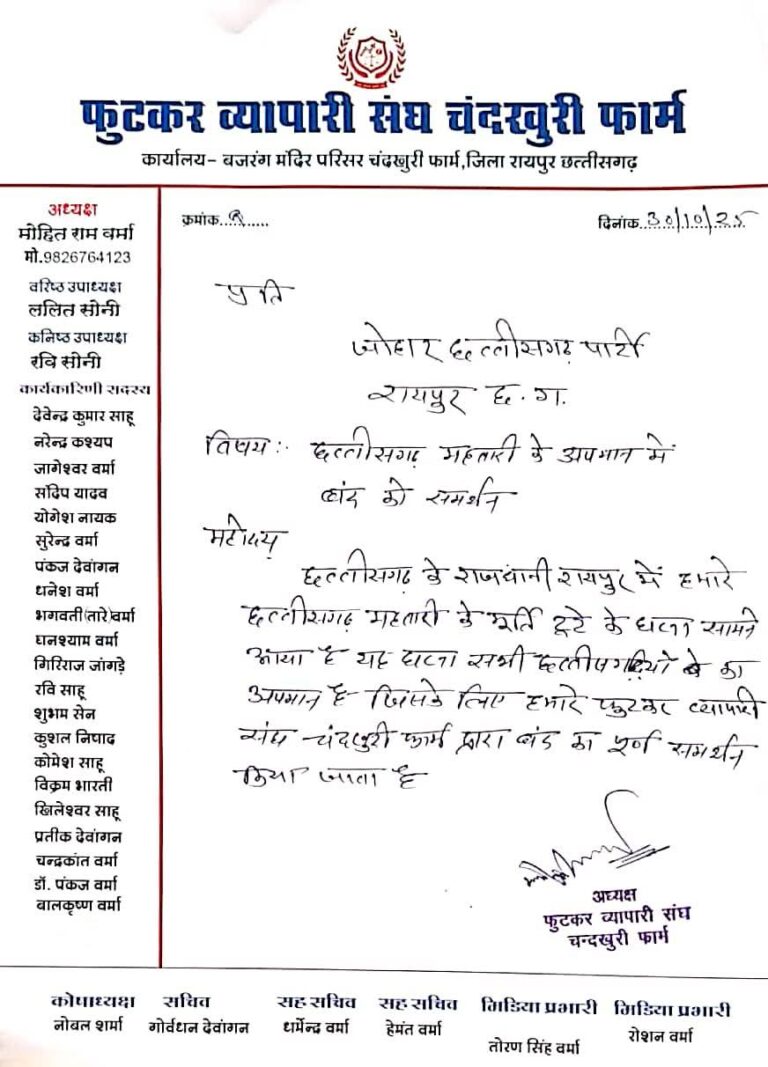 फुटकर व्यापारी संघ चंदखुरी फार्म
कार्यालय- बजरंग मंदिर परिसर चंदखुरी फार्म,जिला रायपुर छत्तीसगढ़
क्रमांक
दिनांक 30/10/25
अध्यक्ष
मोहित राम वर्मा
मो.9826764123
वरिष्ठ उपाध्यक्ष
ललित सोनी
कनिष्ठ उपाध्यक्ष
रवि सोनी
कार्यकारिणी सदस्य
देवेन्द्र कुमार साहू
नरेन्द्र कश्यप
जागेश्वर वर्मा
संदिप यादव
योगेश नायक
सुरेन्द्र वर्मा
पंकज देवांगन
धनेश वर्मा
भगवती(तारे)वर्मा
घनश्याम वर्मा
गिरिराज जांगड़े
रवि साहू
शुभम सेन
कुशल निषाद
कोमेश साहू
विक्रम भारती
खिलेश्वर साहू
प्रतीक देवांगन
चन्द्रकांत वर्मा
डॉ. पंकज वर्मा
बालकृष्ण वर्मा
प्रति
जोहार छत्तीसगढ़ पार्टी
रायपुर छ.ग.
विषय:- छत्तीसगढ़ महतारी के अपमान में
बंद को समर्थन
महोदय
छत्तीसगढ़ के राजधानी रायपुर में हमारे
छत्तीसगढ़ महतारी के मूर्ति टूटे के घटना सामने
आया है यह घटना सभी छत्तीसगढ़ियो का
अपमान है जिसके लिए हमारे फुटकर व्यापारी
संघ चंदखुरी फार्म द्वारा बंद का पूर्ण समर्थन
किया जाता है
अध्यक्ष
फुटकर व्यापारी संघ
चन्दखुरी फार्म
कोषाध्यक्ष सचिव सह सचिव सह सचिव मिडिया प्रभारी मिडिया प्रभारी
नोबल शर्मा गोर्वधन देवांगन धर्मेन्द्र वर्मा हेमंत वर्मा तोरण सिंह वर्मा रोशन वर्मा